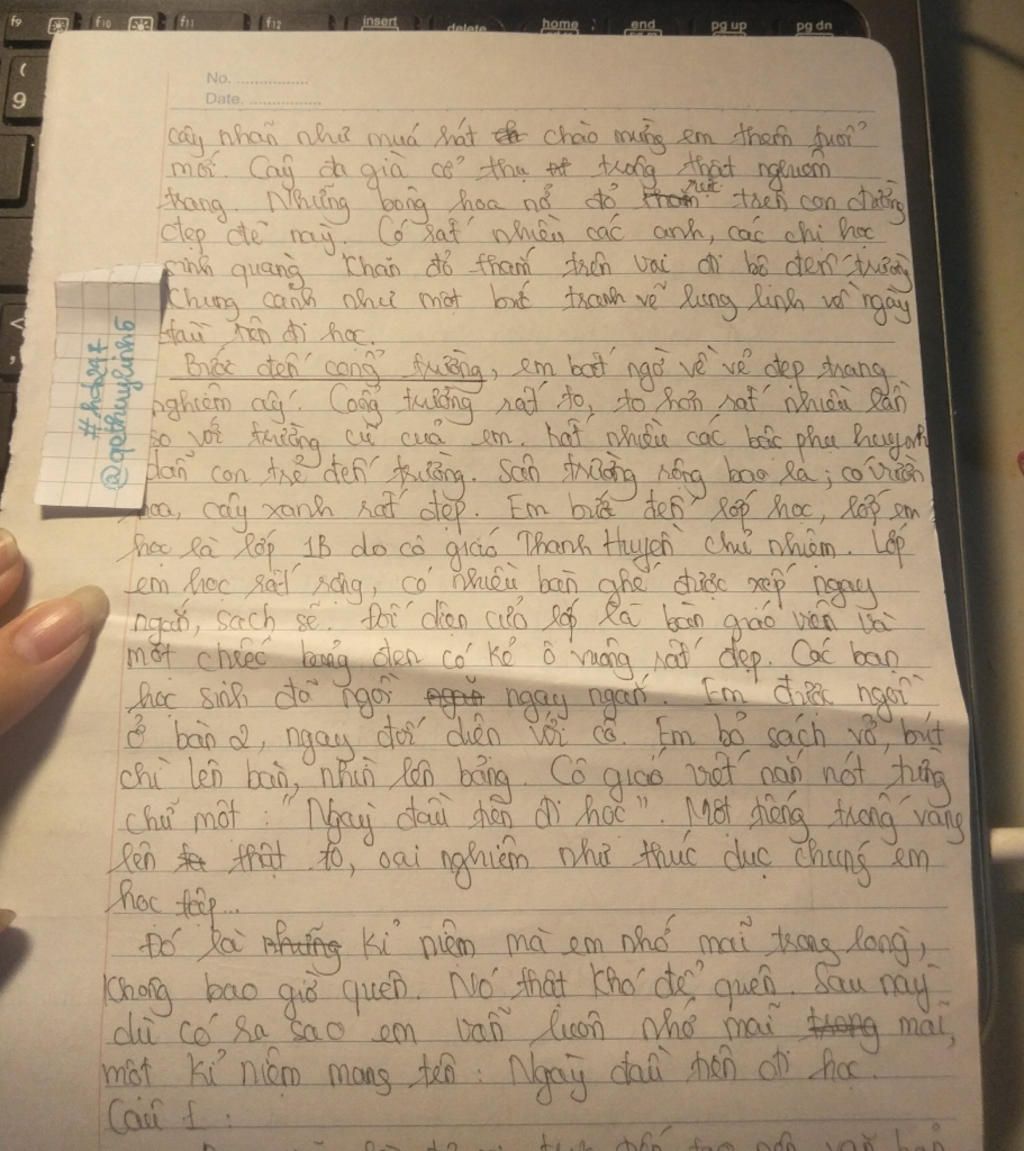 f9 f10 f11 f12 insert delete home end pg up pg dn
( 9
No. ..................
Date. ..................
cây nhãn như múa hát chào mừng em thêm tuổi
mới. Cây đa già cổ thụ trông thật nghiêm
trang. Những bông hoa nở đỏ rực trên con đường
đẹp đẽ này. Có rất nhiều các anh, các chị học
sinh quàng khăn đỏ thắm trên vai đi bộ đến trường
Chung cảnh như một bức tranh vẽ lung linh về ngày
đầu tiên đi học.
Bước đến cổng trường, em bất ngờ về vẻ đẹp trang
nghiêm ấy. Cổng trường rất to, to hơn rất nhiều lần
so với trường cũ của em. Rất nhiều các bác phụ huynh
dẫn con trẻ đến trường. Sân trường rộng bao la; có vườn
hoa, cây xanh rất đẹp. Em bước đến lớp học, lớp em
học là lớp 1B do cô giáo Thanh Huyền chủ nhiệm. Lớp
em học rất rộng, có nhiều bàn ghế được xếp ngay
ngắn, sạch sẽ. Đối diện cửa lớp là bàn giáo viên và
một chiếc bảng đen có kẻ ô vuông rất đẹp. Các bạn
học sinh đã ngồi ngay ngắn. Em được ngồi
ở bàn 2, ngay đối diện với cô. Em bỏ sách vở, bút
chì lên bàn, nhìn lên bảng. Cô giáo viết nắn nót từng
chữ một : "Ngày đầu tiên đi học". Một tiếng trống vang
lên thật to, oai nghiêm như thúc dục chúng em
học tập...
Đó là kỉ niệm mà em nhớ mãi trong lòng,
không bao giờ quên. Nó thật khó để quên. Sau này
dù có ra sao em vẫn luôn nhớ mãi mãi,
một kỉ niệm mang tên : Ngày đầu tiên đi học.
Câu 1 :
#hd247
@qebthuylinh5